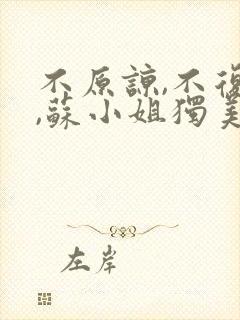 不原諒,不復
,蘇小姐獨美
左岸